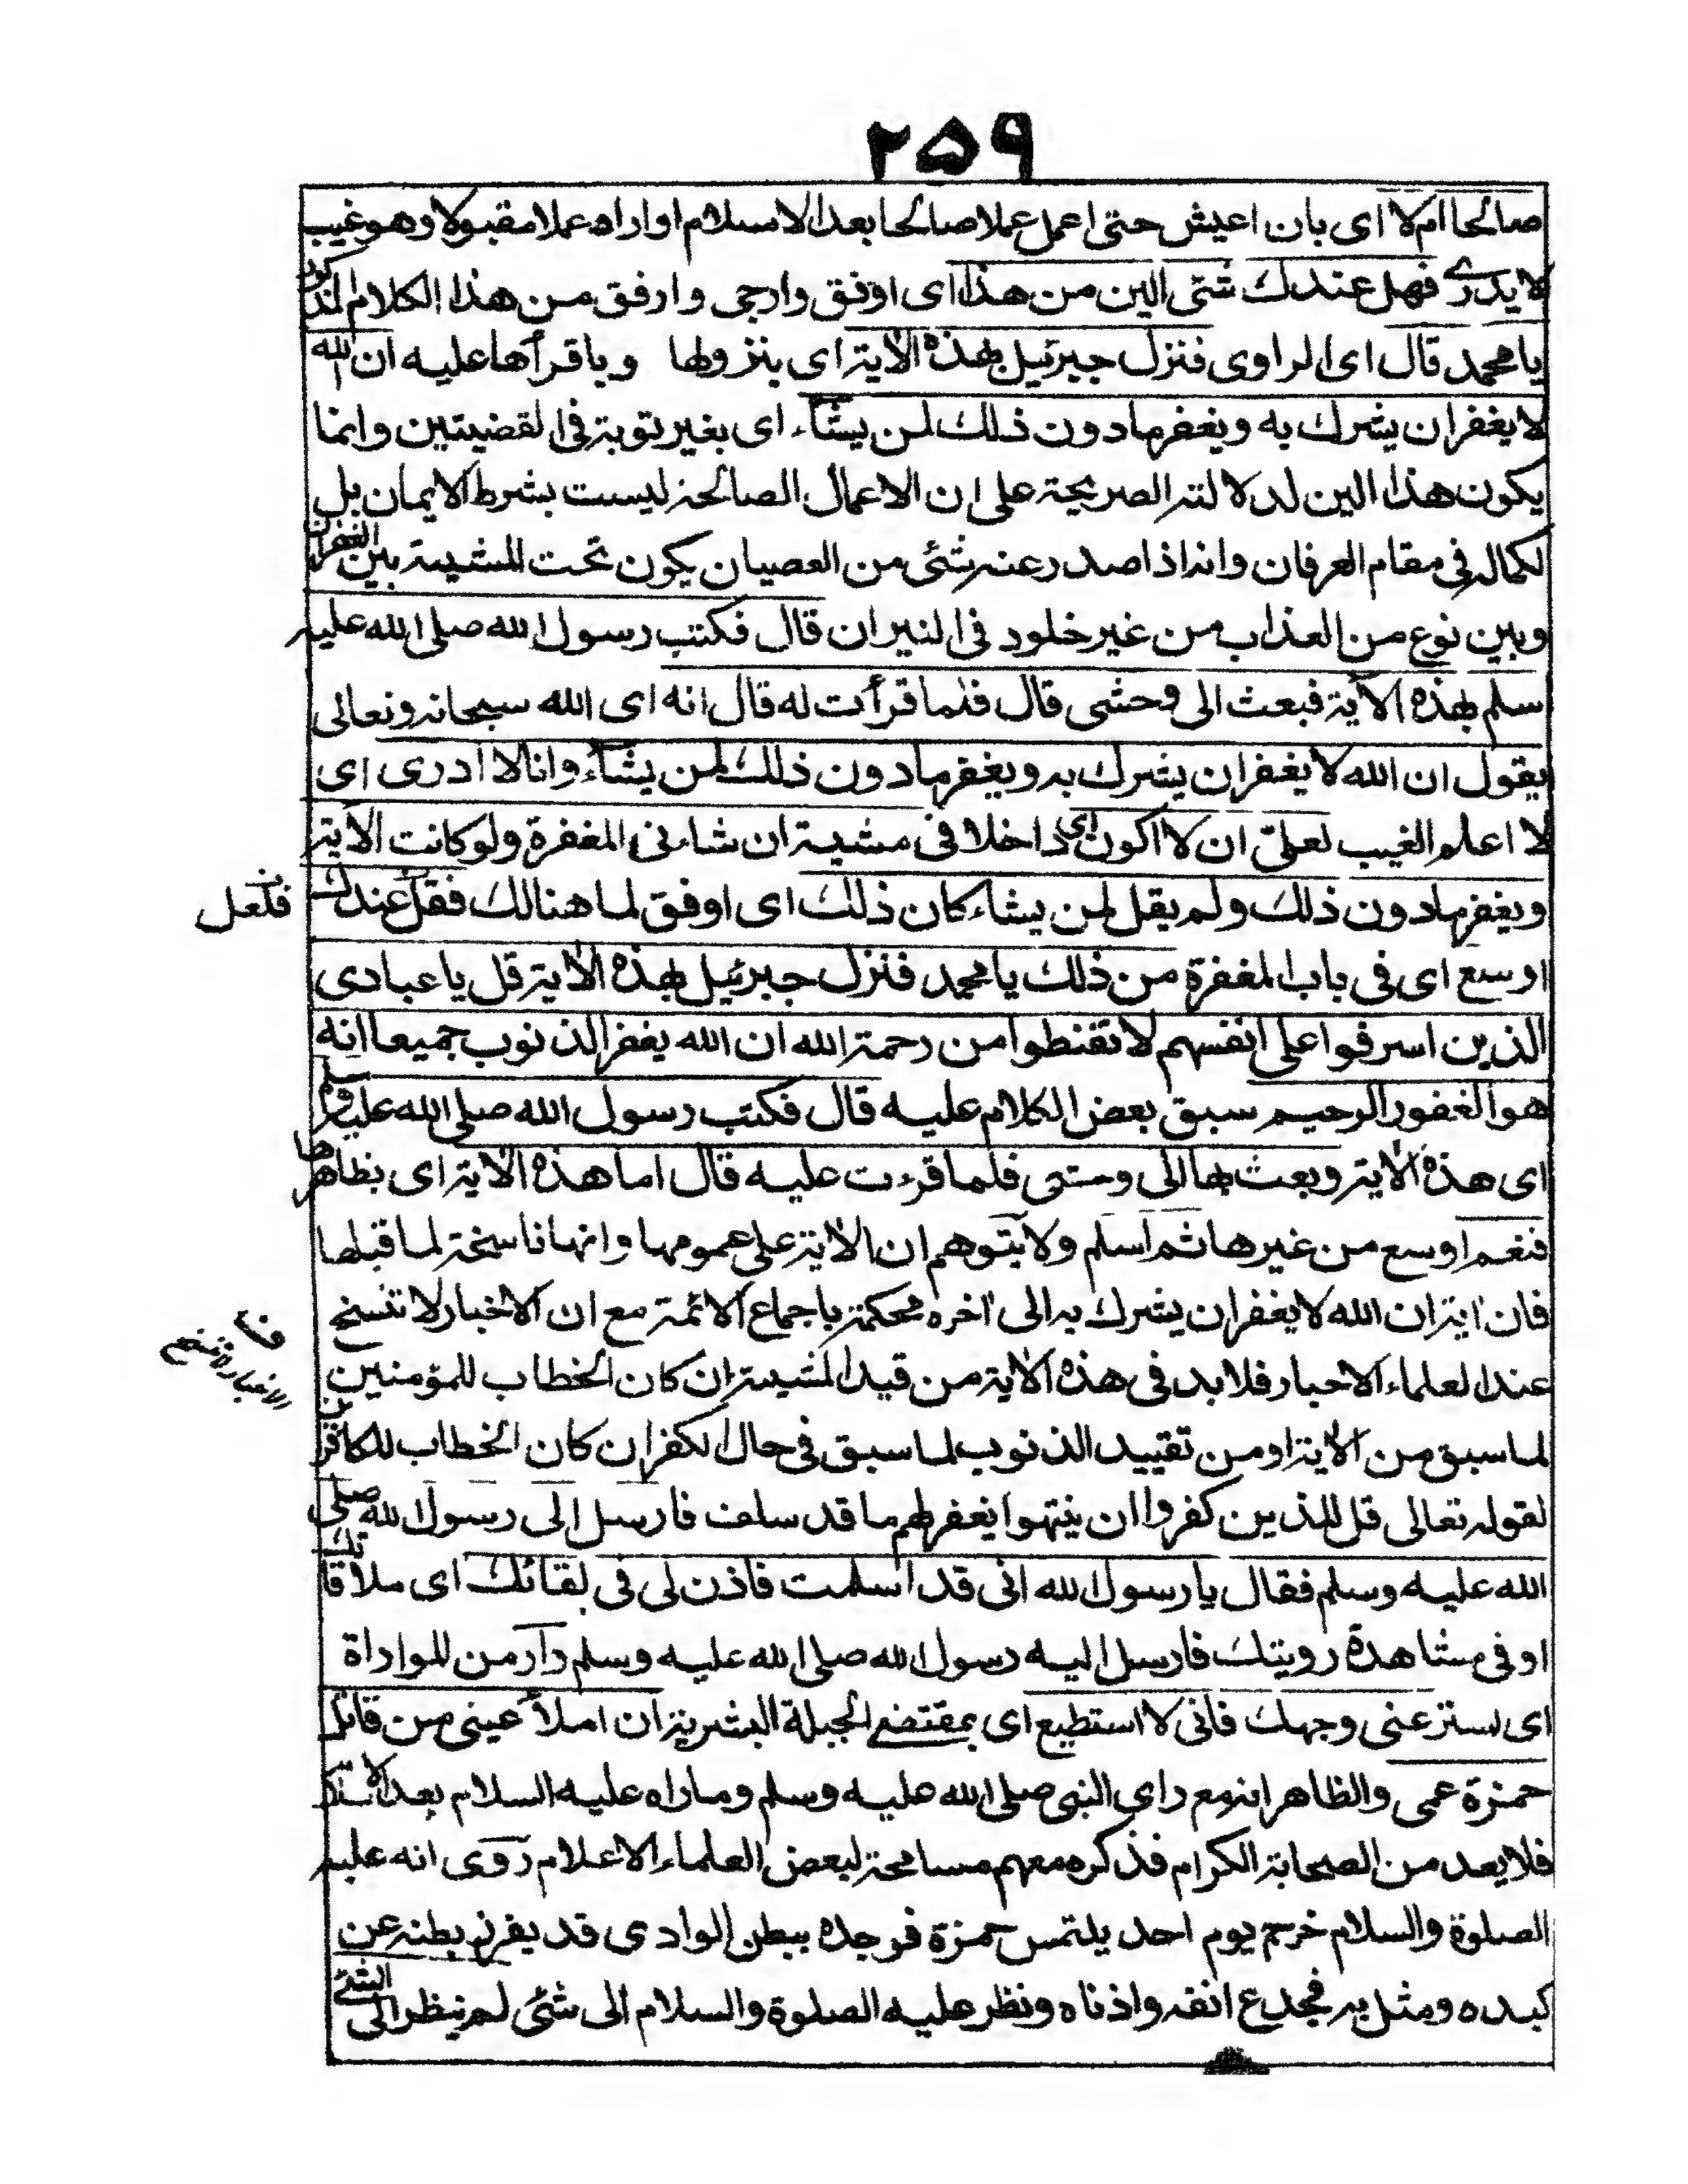 ٢۵٩
صالحا ام لا ای بان اعیش حتی اعمل عملا صالحا بعد الاسلام او اراه عملا مقبولا وهو غیب
لا یدری فهل عندك شئی الین من هذا ای اوفق وارجی وارفق من هذا الکلام المذکور
یا محمد قال ای الراوی فنزل جبرئیل بهذه الآیة ای بنزولها وباقرأها علیه ان الله
لا یغفر ان یشرك به ویغفر مادون ذلك لمن یشآء ای بغیر توبة فی القضیتین وانما
یکون هذا الین لدلالته الصریحة علی ان الاعمال الصالحة لیست بشرط الایمان بل
لکماله فی مقام العرفان وانه اذا صدر عنه شئی من العصیان یکون تحت المشیة بین الغفران
وبین نوع من العذاب من غیر خلود فی النیران قال فکتب رسول الله صلی الله علیه
سلم بهذه الآیة فبعث الی وحشی قال فلما قرأت له قال انه ای الله سبحانه وتعالی
یقول ان الله لا یغفر ان یشرك به ویغفر مادون ذلك لمن یشآء وانا لا ادری ای
لا اعلم الغیب لعلیّ ان لا اکون ای داخلا فی مشیة ان شاء فی المغفرة ولو کانت الآیة
ویغفر مادون ذلك ولم یقل لمن یشاء کان ذلك ای اوفق لما هنالك فقل عندك
فلعل
اوسع ای فی باب المغفرة من ذلك یا محمد فنزل جبرئیل بهذه الآیة قل یا عبادی
الذین اسرفوا علی انفسهم لا تقنطوا من رحمة الله ان الله یغفر الذنوب جمیعا انه
هو الغفور الرحیم سبق بعض الکلام علیه قال فکتب رسول الله صلی الله علیه وسلم
ای هذه الآیة وبعث بها الی وحشی فلما قرءت علیه قال اما هذه الآیة ای بظاهرها
فنعم اوسع من غیرها ثم اسلم ولا یتوهم ان الآیة علی عمومها وانها ناسخة لما قبلها
فان آیة ان الله لا یغفر ان یشرك به الی آخره محکمة باجماع الائمة مع ان الاخبار لا تنسخ
الاخبار لا تنسخ
عند العلماء الاحبار فلا بد فی هذه الآیة من قید المشیة ان کان الخطاب للمؤمنین
لما سبق من الآیة او من تقیید الذنوب لما سبق فی حال الکفر ان کان الخطاب للکافرین
لقوله تعالی قل للذین کفروا ان ینتهوا یغفر لهم ما قد سلف فارسل الی رسول الله صلی
الله علیه وسلم فقال یا رسول الله انی قد اسلمت فاذن لی فی لقائك ای ملاقاتك
او فی مشاهدة رویتك فارسل الیه رسول الله صلی الله علیه وسلم دار من المواراة
ای لستر عنی وجهك فانی لا استطیع ای بمقتضی الجبلة البشریة ان املأ عینی من قاتل
حمزة عمی والظاهر انه مع رای النبی صلی الله علیه وسلم وماراه علیه السلام بعد الاسلام
فلا یعد من الصحابة الکرام فذکره معهم مسامحة لبعض العلماء الاعلام روی انه علیه
الصلوة والسلام خرج یوم احد یلتمس حمزة فوجده ببطن الوادی قد بقر بطنه عن
کبده ومثل به فجدع انفه واذناه ونظر علیه الصلوة والسلام الی شئی لم ینظر الی الشئی